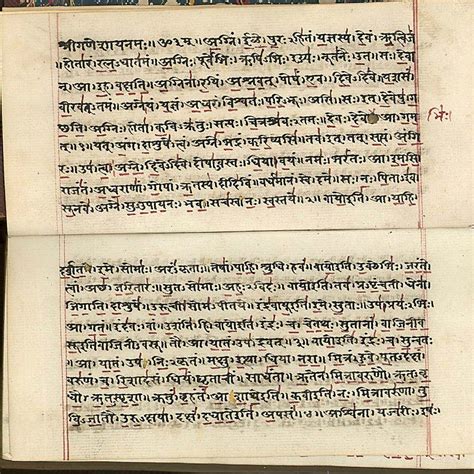 श्रीगणेशायनमः॥ॐ३म्॥ अग्निं। ईळे। पुरःऽहितं। यज्ञस्य। देवं। ऋत्विजं
।होतारं। रत्नऽधातमं॥ अग्निः। पूर्वेभिः। ऋषिऽभिः। ईड्यः। नूतनैः। उत। सः। देवा
न्। आ। इह। वक्षति॥ अग्निना। रयिं। अश्नवत्। पोषं। एव। दिवेऽदिवे। यशसं
वीरवत्ऽतमं॥ अग्ने। यं। यज्ञं। अध्वरं। विश्वतः। परिऽभूः। असि। सः। इत्। देवेषु। ग
च्छति॥ अग्निः। होता। कविऽक्रतुः। सत्यः। चित्रश्रवःऽतमः। देवः। देवेभिः। आ। गम
त्॥१॥ यत्। अंग। दाशुषे। त्वं। अग्ने। भद्रं। करिष्यसि। तव। इत्। तत्। सत्यं। अंगि
रः॥ उप। त्वा। अग्ने। दिवेऽदिवे। दोषाऽवस्तः। धिया। वयं। नमः। भरंतः। आ। इमसि॥
राजंतं। अध्वराणां। गोपां। ऋतस्य। दीदिविं। वर्धमानं। स्वे। दमे॥ सः। नः। पिताऽइव
सूनवे। अग्ने। सुऽउपायनः। भव। सचस्व। नः। स्वस्तये॥२॥ वायोइति। आ। याहि।
भिः।
दर्शत। इमे। सोमाः। अरंऽकृताः। तेषां। पाहि। श्रुधि। हवं॥ वायोइति। उक्थेभिः। जरंते
त्वां। अच्छ। जरितारः। सुतऽसोमाः। अहःऽविदः॥ वायोइति। तव। प्रऽपृंचती। धेना।
जिगाति। दाशुषे। उरूची। सोमऽपीतये॥ इंद्रवायूइति। इमे। सुताः। उप। प्रयःऽभिः।
आ। गतं। इंदवः। वां। उशंति। हि॥ वायोइति। इंद्रः। च। चेतथः। सुतानां। वाजिनीव
सूइतिवाजिनीऽवसू। तौ। आ। यातं। उप। द्रवत्॥३॥ वायोइति। इंद्रः। च। सुन्वतः
।आ। यातं। उप। निःऽकृतं। मक्षु। इत्था। धिया। नरा॥ मित्रं। हुवे। पूतऽदक्षं।
वरुणं। च। रिशादसं। धियं। घृताचीं। साधंता॥ ऋतेन। मित्रावरुणौ। ऋतऽवृ
धौ। ऋतऽस्पृशा। क्रतुं। बृहंतं। आशाथेइति॥ कवीइति। नः। मित्रावरुणा। तु
विऽजातौ। उरुऽक्षया। दक्षं। दधातेइति। अपसं॥४॥ अश्विना। यज्वरीः। इषः।